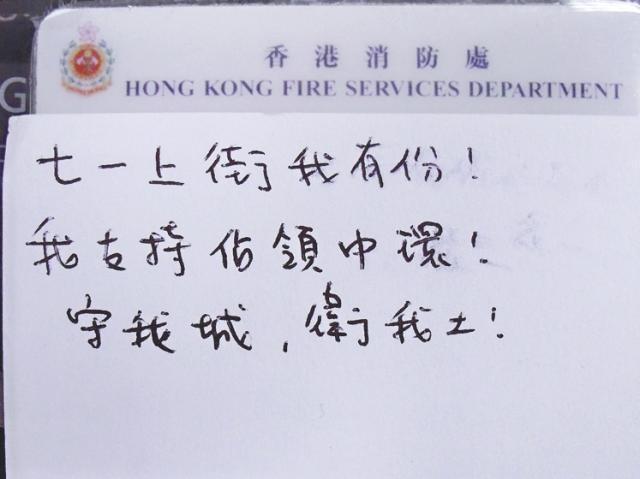 G
香港消防處
HONG KONG FIRE SERVICES DEPARTMENT
七一上街我有份！
我支持佔領中環！
守我城，衛我土！